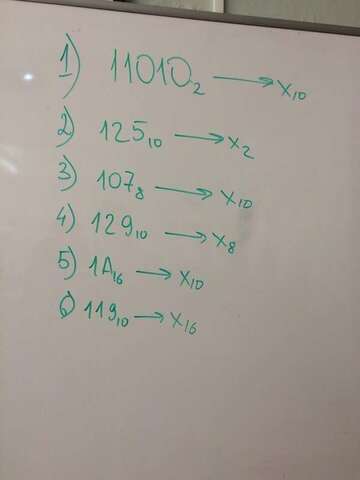 1) 11010₂ → X₁₀
2) 125₁₀ → X₂
3) 107₈ → X₁₀
4) 129₁₀ → X₈
5) 1A₁₆ → X₁₀
6) 119₁₀ → X₁₆